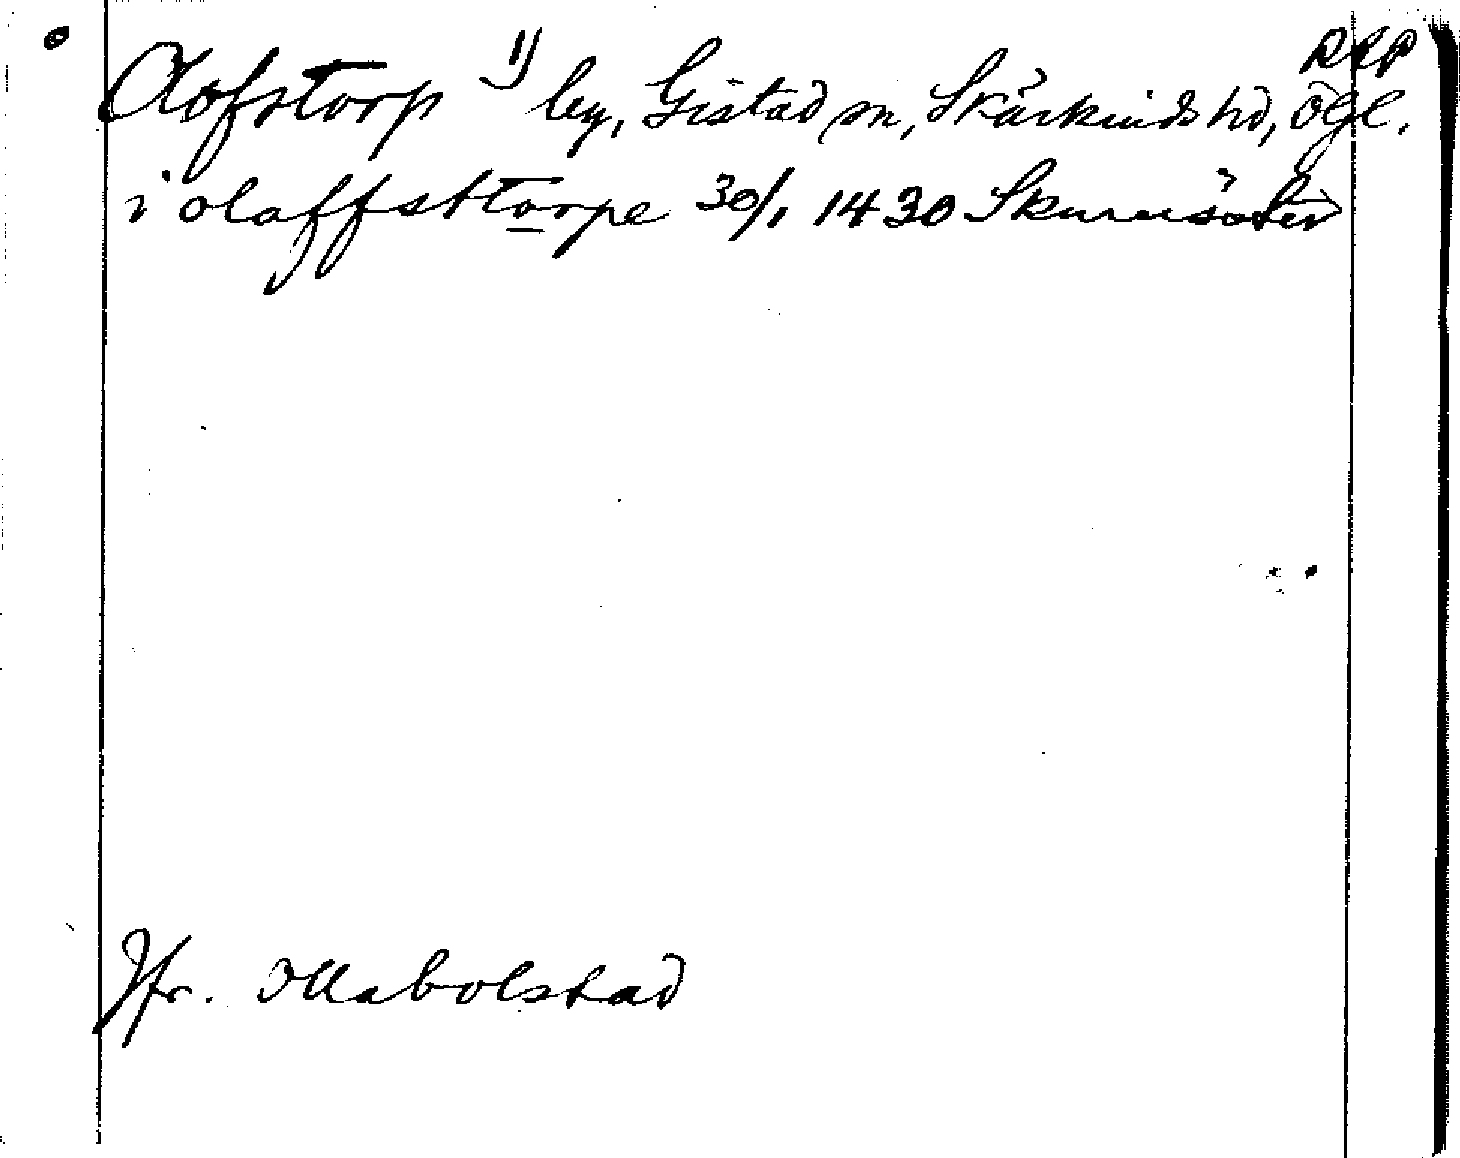 RAP
Olofstorp 1) by, Gistad sn, Skärkinds hd, Ögl.
i olaffsttorpe 30/1 1430 Skurusäter
Jfr. Ollabolstad